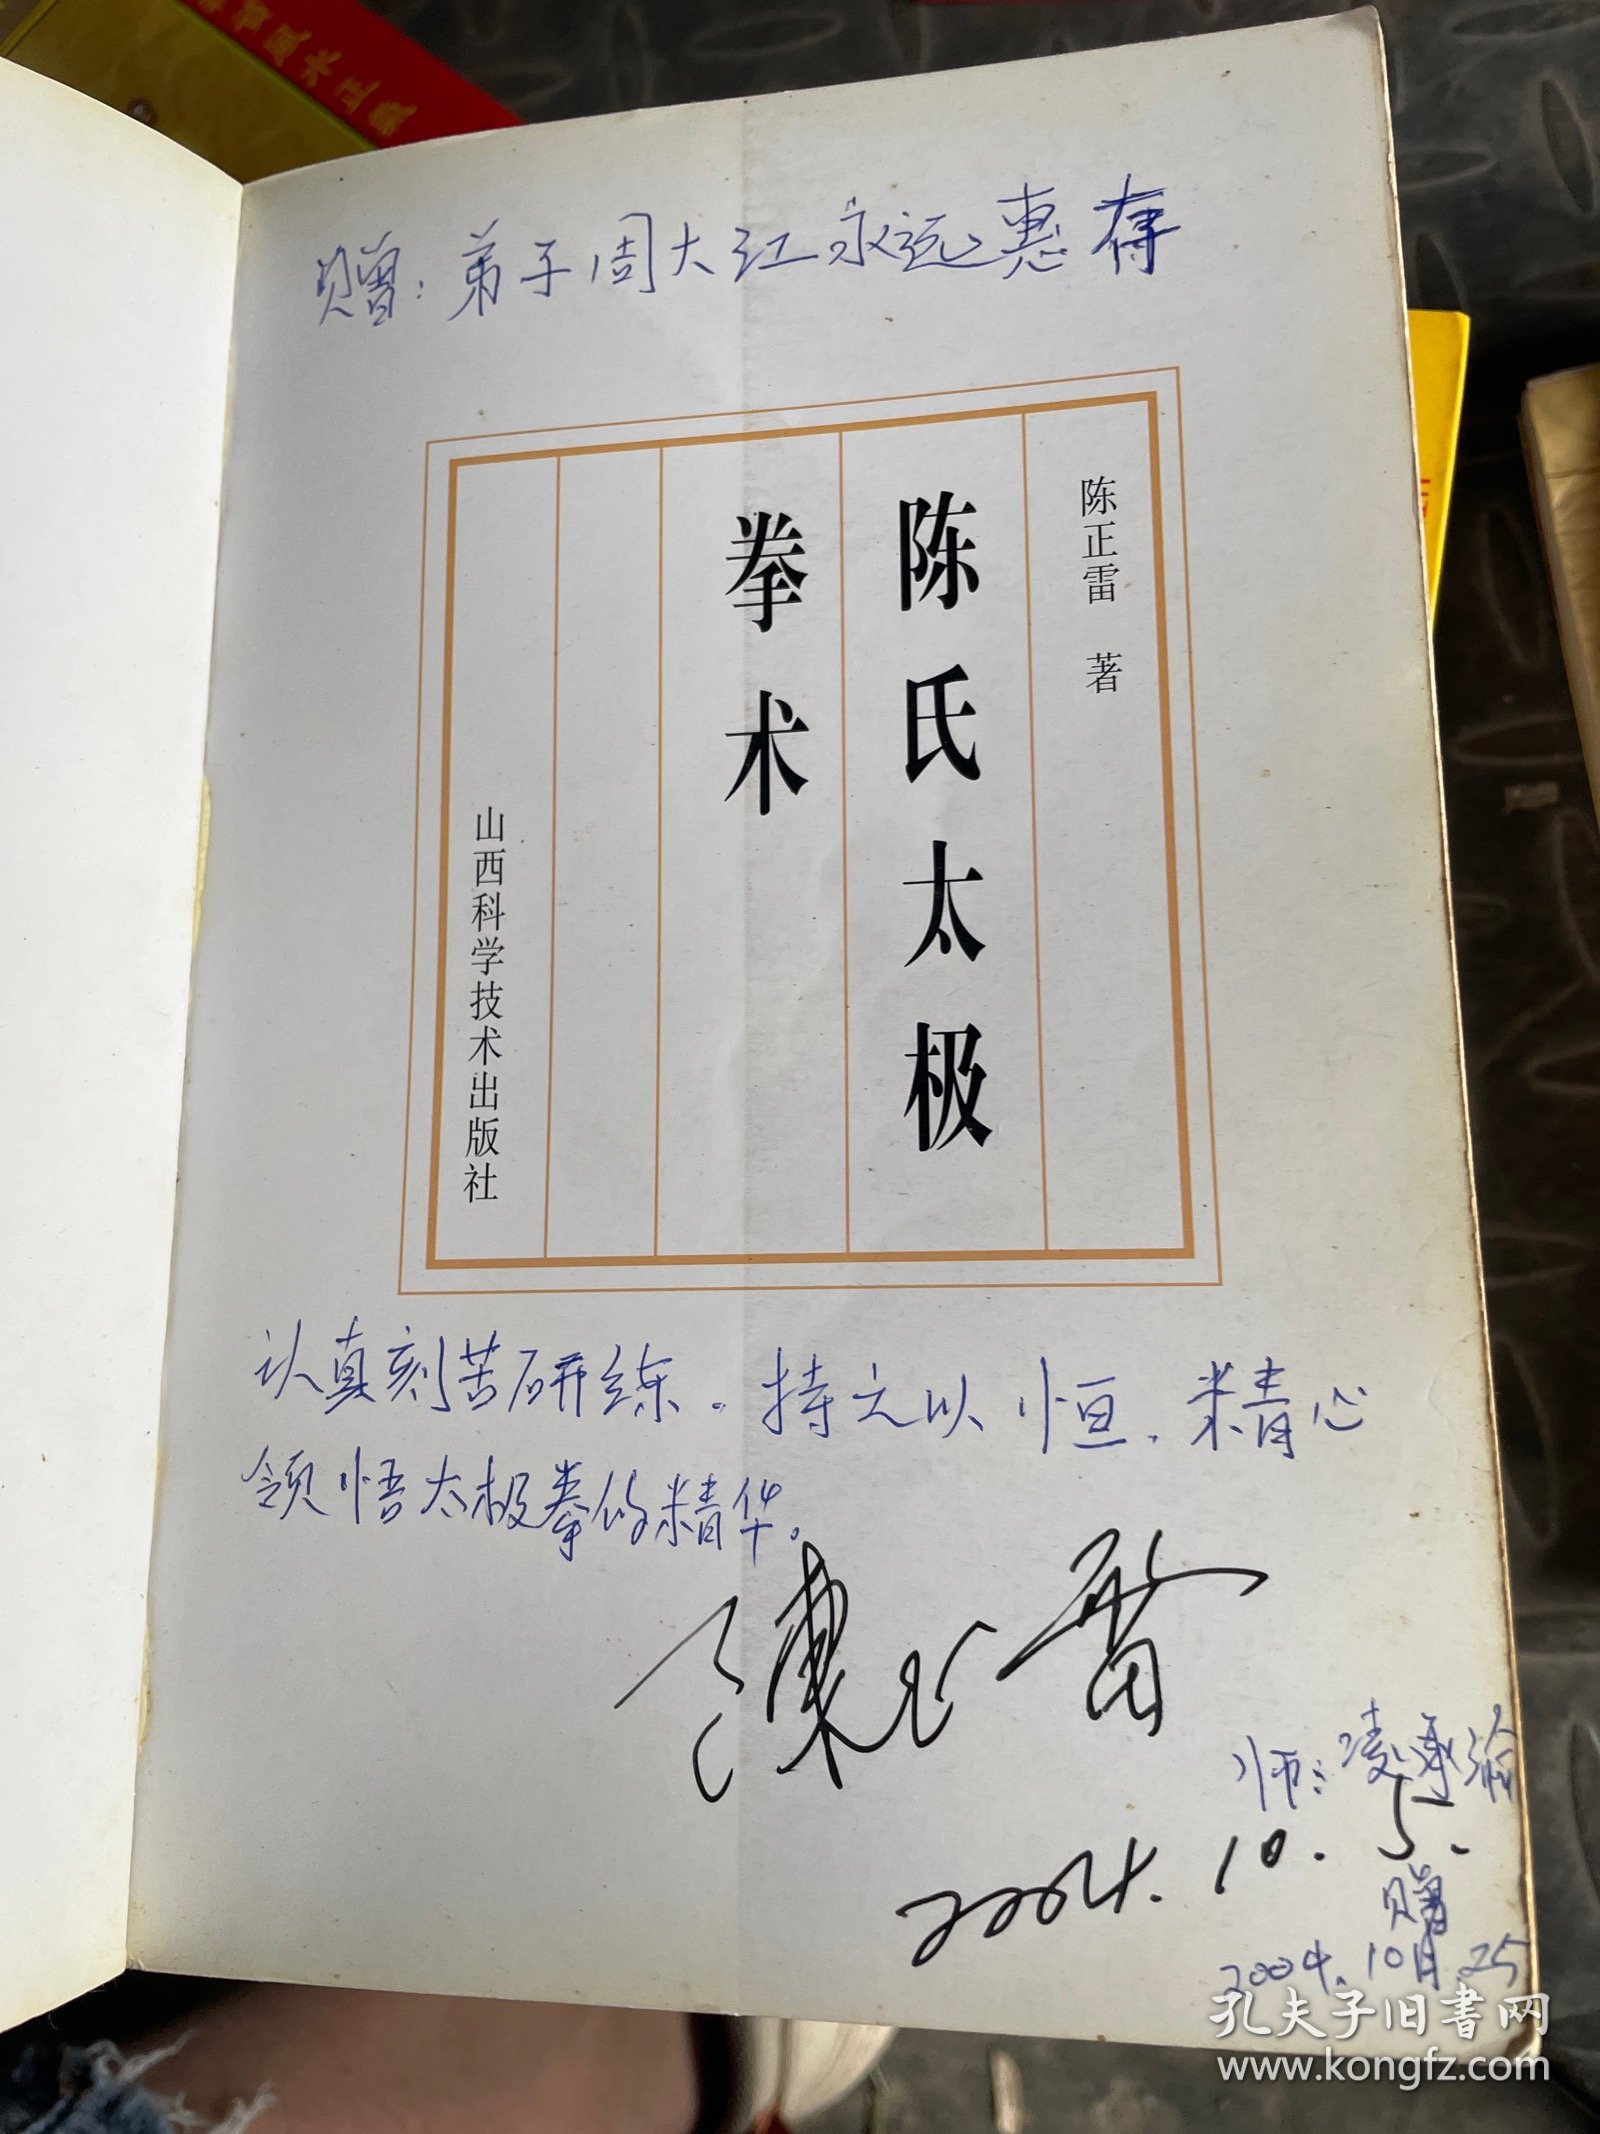 赠：弟子周大江永远惠存
陈正雷 著
陈氏太极
拳术
山西科学技术出版社
认真刻苦研练。持之以恒。精心
领悟太极拳的精华。
陳正雷
师：凌承渝
2004.10.5.
赠
2004.10月25
孔夫子旧书网
www.kongfz.com